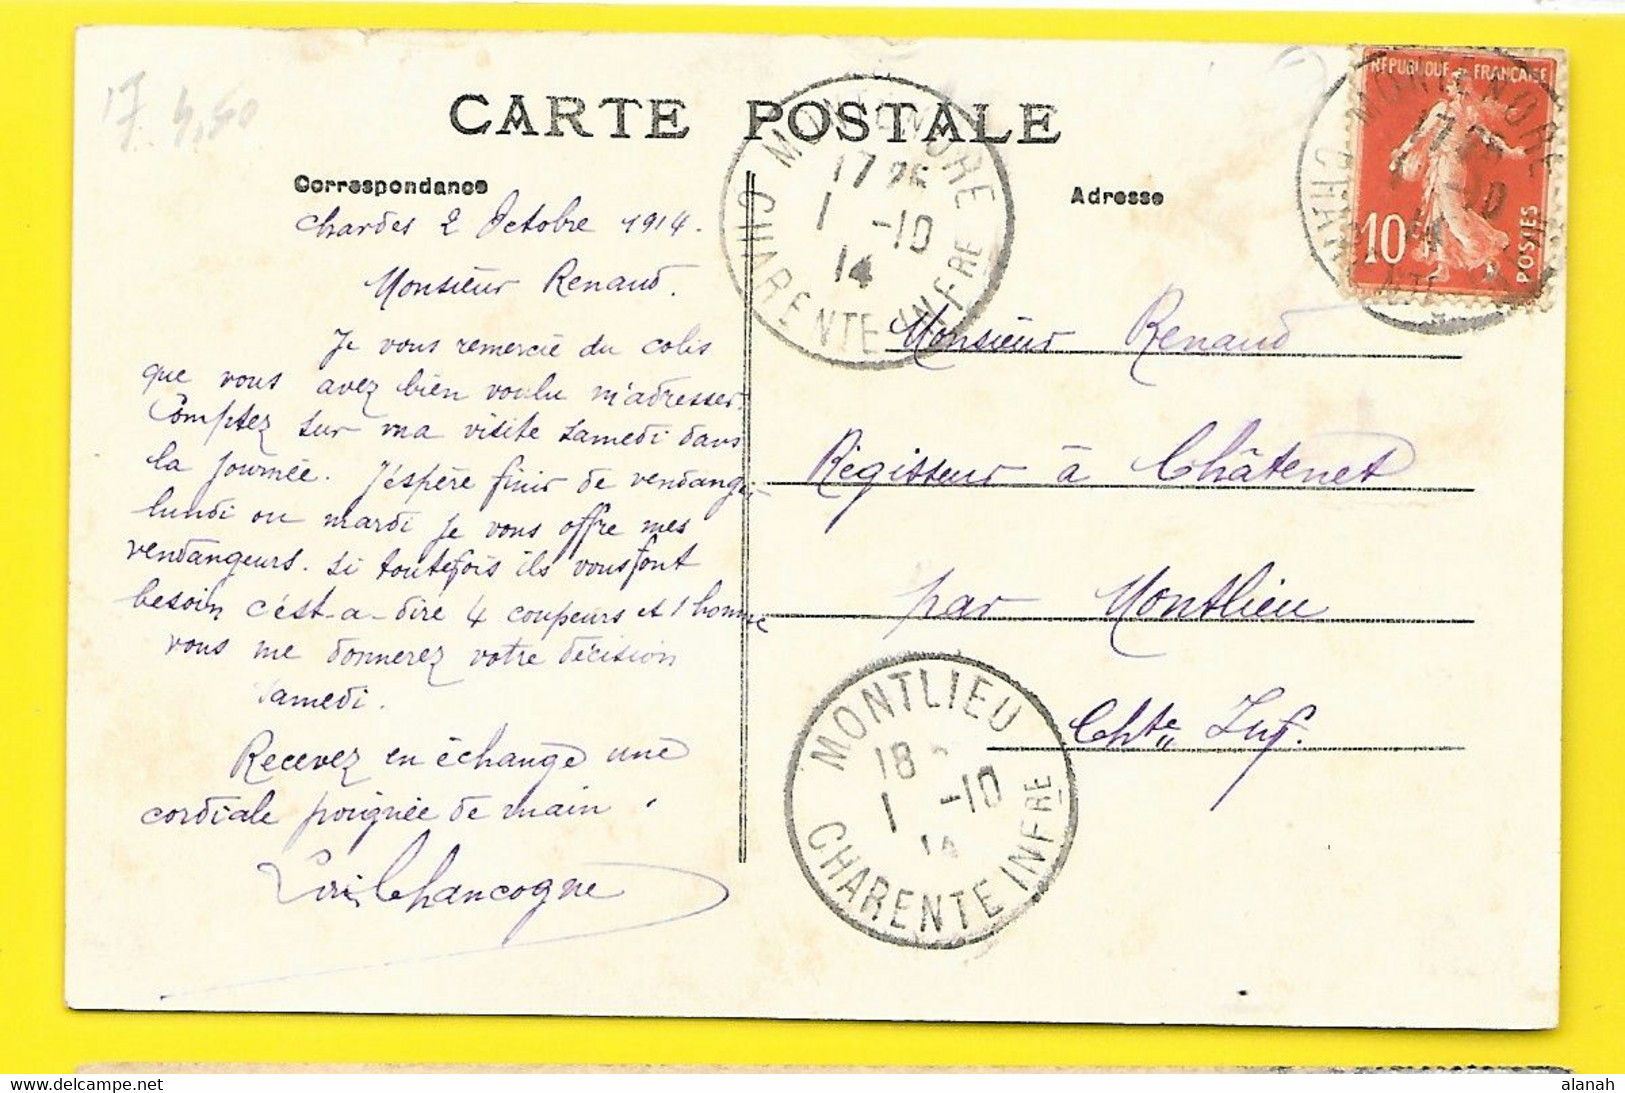 17 4,50
CARTE POSTALE
Correspondance
Adresse
Chardes 2 Octobre 1914.
Monsieur Renaud.
Je vous remercie du colis
que vous avez bien voulu m'adresser.
Comptez sur ma visite samedi dans
la journée. J'éspère finir de vendanger
lundi ou mardi je vous offre mes
vendangeurs. si toutefois ils vous font
besoin c'ést-a-dire 4 coupeurs et 1 homme
vous me donnerez votre décision
samedi.
Recevez en échange une
cordiale poignée de main.
Chancogne
MONTENDRE
17 25
1 -10
14
CHARENTE INFRE
REPUBLIQUE FRANÇAISE
10
POSTES
MONTENDRE
17 25
-10
14
Monsieur Renaud
Régisseur à Châtenet
par Montlieu
Chte Inf.
MONTLIEU
18
1 -10
14
CHARENTE INFRE
alanah